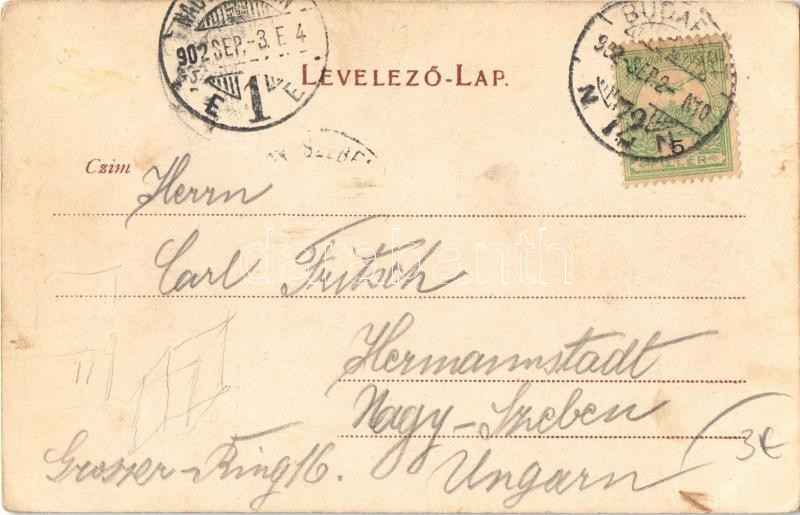 902 SEP.-3. E 4
1
BUDAP
LEVELEZŐ-LAP.
5
FILLÉR
Czim
Herrn
Carl Fritsch
darabanth
Hermannstadt
Nagy-Szeben
Groszer-Ring 16.
Ungarn
3€